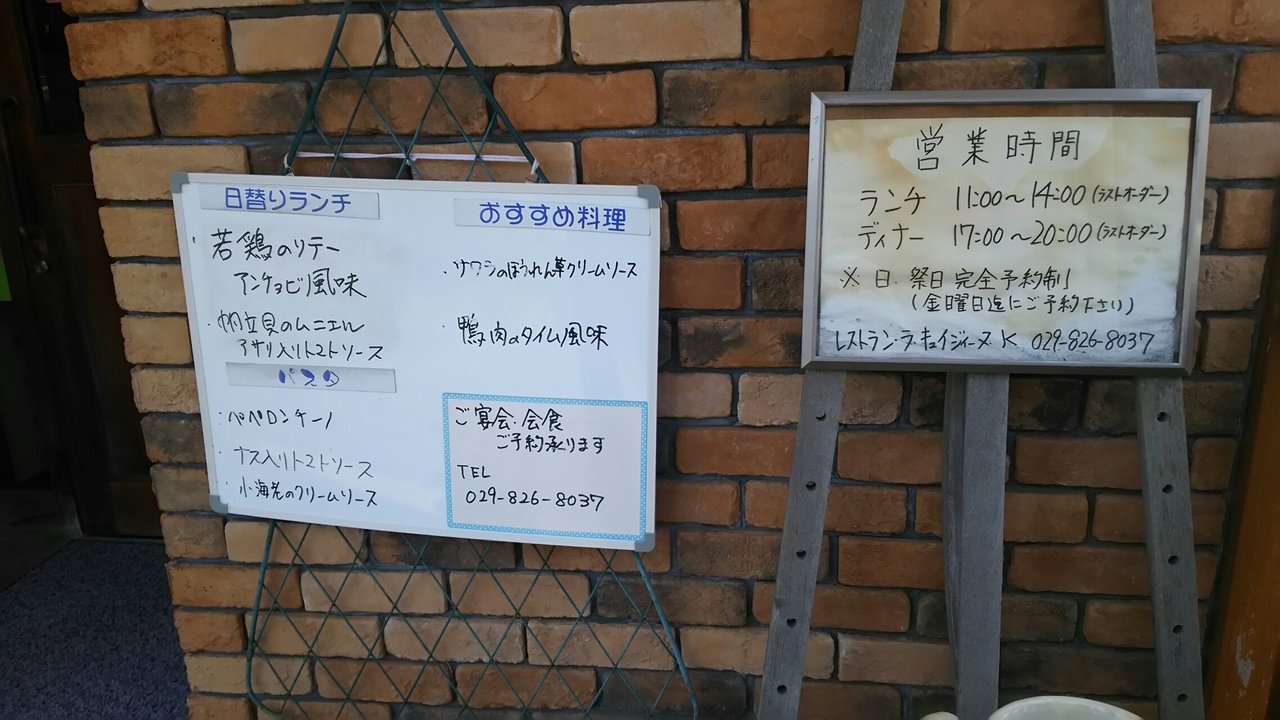 日替りランチ
若鶏のソテー
アンチョビ風味
・帆立貝のムニエル
アサリ入りトマトソース
パスタ
・ペペロンチーノ
・ナス入りトマトソース
・小海老のクリームソース
おすすめ料理
・サワラのほうれん草クリームソース
・鴨肉のタイム風味
ご宴会・会食
ご予約承ります
TEL
029-826-8037
営業時間
ランチ 11:00〜14:00(ラストオーダー)
ディナー 17:00〜20:00(ラストオーダー)
※日.祭日完全予約制
(金曜日迄にご予約下さい)
レストラン・ラ・キュイジーヌ K 029-826-8037